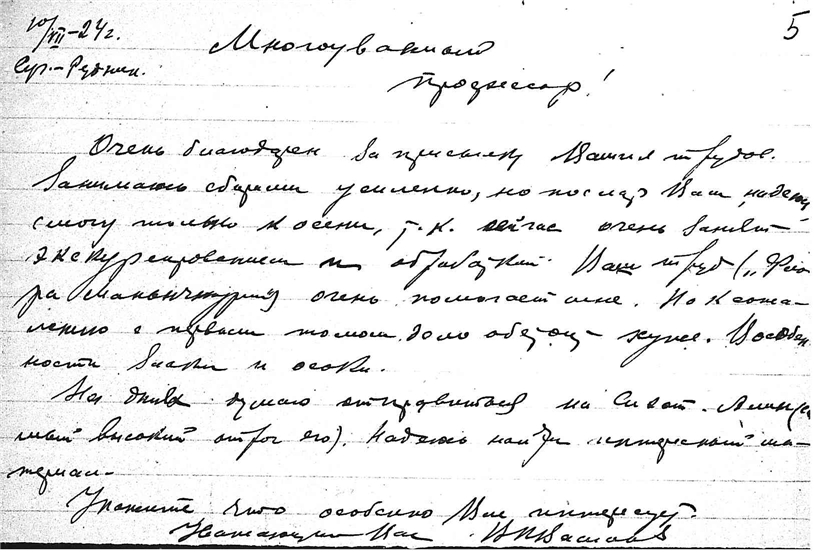 10/VII-24 г.
5
Сур.-Рудник.
Многоуважаемый
профессор!
Очень благодарен за присылку Ваших трудов.
Занимаюсь сборами усиленно, но послать Вам, надеюсь,
смогу только к осени, т.к. сейчас очень занят
экскурсированием и обработкой. Ваш труд („Фло-
ра Маньчжурии“) очень помогает мне. Но к сожа-
лению с первым томом дело обстоит хуже. В особен-
ности злаки и осоки.
На днях думаю отправиться на Сихот.-Алин (са-
мый высокий отрог его). Надеюсь найти интересный ма-
териал.
Укажите что особенно Вас интересует.
Уважающий Вас